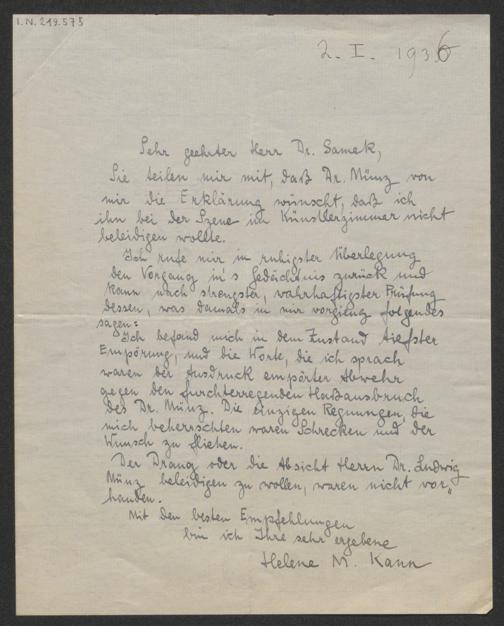 I.N. 219.575
2. I. 1936
Sehr geehrter Herr Dr. Samek,
Sie teilen mir mit, daß Dr. Münz von
mir die Erklärung wünscht, daß ich
ihn bei der Szene im Künstlerzimmer nicht
beleidigen wollte.
Ich rufe mir in ruhigster Überlegung
den Vorgang in's Gedächtnis zurück und
kann nach strengster, wahrhaftigster Prüfung
dessen, was damals in mir vorging folgendes
sagen:
Ich befand mich in dem Zustand tiefster
Empörung, und die Worte, die ich sprach
waren der Ausdruck empörter Abwehr
gegen den furchterregenden Haßausbruch
des Dr. Münz. Die einzigen Regnungen, die
mich beherrschten waren Schrecken und der
Wunsch zu fliehen.
Der Drang oder die Absicht Herrn Dr. Ludwig
Münz beleidigen zu wollen, waren nicht vor„
handen.
Mit den besten Empfehlungen
bin ich Ihre sehr ergebene
Helene M. Kann